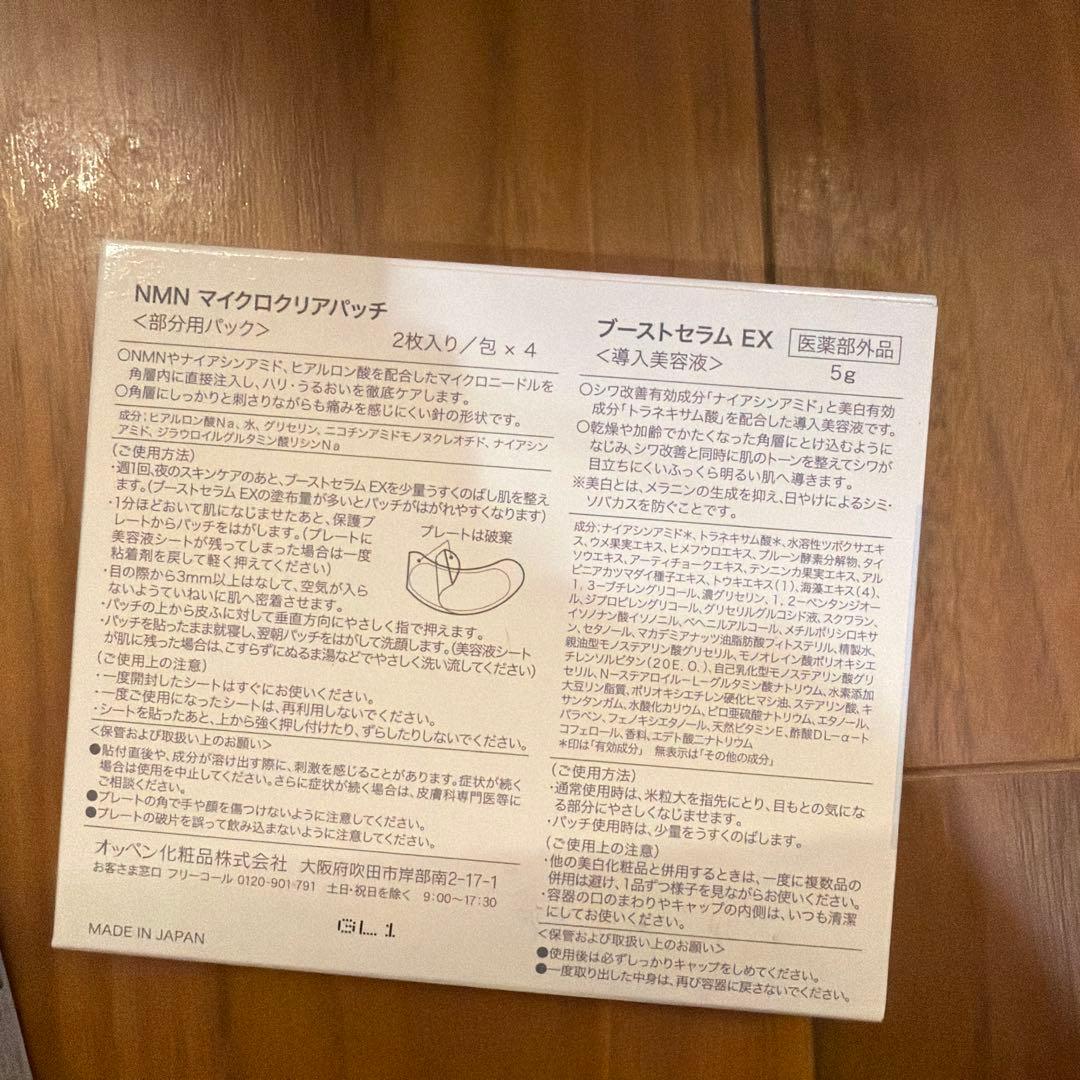 NMN マイクロクリアパッチ
<部分用パック>
2枚入り/包 × 4
○NMNやナイアシンアミド、ヒアルロン酸を配合したマイクロニードルを
角層内に直接注入し、ハリ・うるおいを徹底ケアします。
○角層にしっかりと刺さりながらも痛みを感じにくい針の形状です。
成分:ヒアルロン酸Na、水、グリセリン、ニコチンアミドモノヌクレオチド、ナイアシン
アミド、ジラウロイルグルタミン酸リシンNa
(ご使用方法)
・週1回、夜のスキンケアのあと、ブーストセラム EXを少量うすくのばし肌を整え
ます。(ブーストセラム EXの塗布量が多いとパッチがはがれやすくなります)
・1分ほどおいて肌になじませたあと、保護プ
レートからパッチをはがします。(プレートに
美容液シートが残ってしまった場合は一度
粘着剤を戻して軽く押えてください)
プレートは破棄
・目の際から3mm以上はなして、空気が入ら
ないようていねいに肌へ密着させます。
・パッチの上から皮ふに対して垂直方向にやさしく指で押えます。
・パッチを貼ったまま就寝し、翌朝パッチをはがして洗顔します。(美容液シート
が肌に残った場合は、こすらずにぬるま湯などでやさしく洗い流してください)
(ご使用上の注意)
・一度開封したシートはすぐにお使いください。
・一度ご使用になったシートは、再利用しないでください。
・シートを貼ったあと、上から強く押し付けたり、ずらしたりしないでください。
<保管および取扱い上のお願い>
●貼付直後や、成分が溶け出す際に、刺激を感じることがあります。症状が続く
場合は使用を中止してください。さらに症状が続く場合は、皮膚科専門医等に
ご相談ください。
●プレートの角で手や顔を傷つけないように注意してください。
●プレートの破片を誤って飲み込まないように注意してください。
オッペン化粧品株式会社 大阪府吹田市岸部南2-17-1
お客さま窓口 フリーコール 0120-901 791 土日・祝日を除く 9:00～17:30
MADE IN JAPAN
GL1
ブーストセラム EX
医薬部外品
<導入美容液>
5g
○シワ改善有効成分「ナイアシンアミド」と美白有効
成分「トラネキサム酸」を配合した導入美容液です。
○乾燥や加齢でかたくなった角層にとけ込むように
なじみ、シワ改善と同時に肌のトーンを整えてシワが
目立ちにくいふっくら明るい肌へ導きます。
※美白とは、メラニンの生成を抑え、日やけによるシミ・
ソバカスを防ぐことです。
成分:ナイアシンアミド*、トラネキサム酸*、水溶性ツボクサエキ
ス、ウメ果実エキス、ヒメフウロエキス、プルーン酵素分解物、タイ
ソウエキス、アーティチョークエキス、テンニンカ果実エキス、アル
ピニアカツマダイ種子エキス、トウキエキス(1)、海藻エキス(4)、
1,3-ブチレングリコール、濃グリセリン、1,2-ペンタンジオー
ル、ジプロピレングリコール、グリセリルグルコシド液、スクワラン、
イソノナン酸イソノニル、ベヘニルアルコール、メチルポリシロキサ
ン、セタノール、マカデミアナッツ油脂肪酸フィトステリル、精製水、
親油型モノステアリン酸グリセリル、モノオレイン酸ポリオキシエ
チレンソルビタン(20E.O.)、自己乳化型モノステアリン酸グリ
セリル、N-ステアロイル-L-グルタミン酸ナトリウム、水素添加
大豆リン脂質、ポリオキシエチレン硬化ヒマシ油、ステアリン酸、キ
サンタンガム、水酸化カリウム、ピロ亜硫酸ナトリウム、エタノール、
パラベン、フェノキシエタノール、天然ビタミンE、酢酸DL-α-ト
コフェロール、香料、エデト酸二ナトリウム
*印は「有効成分」 無表示は「その他の成分」
(ご使用方法)
・通常使用時は、米粒大を指先にとり、目もとの気にな
る部分にやさしくなじませます。
・パッチ使用時は、少量をうすくのばします。
(ご使用上の注意)
・他の美白化粧品と併用するときは、一度に複数品の
併用は避け、1品ずつ様子を見ながらお使いください。
・容器の口のまわりやキャップの内側は、いつも清潔
にしてお使いください。
<保管および取扱い上のお願い>
●使用後は必ずしっかりキャップをしめてください。
●一度取り出した中身は、再び容器に戻さないでください。